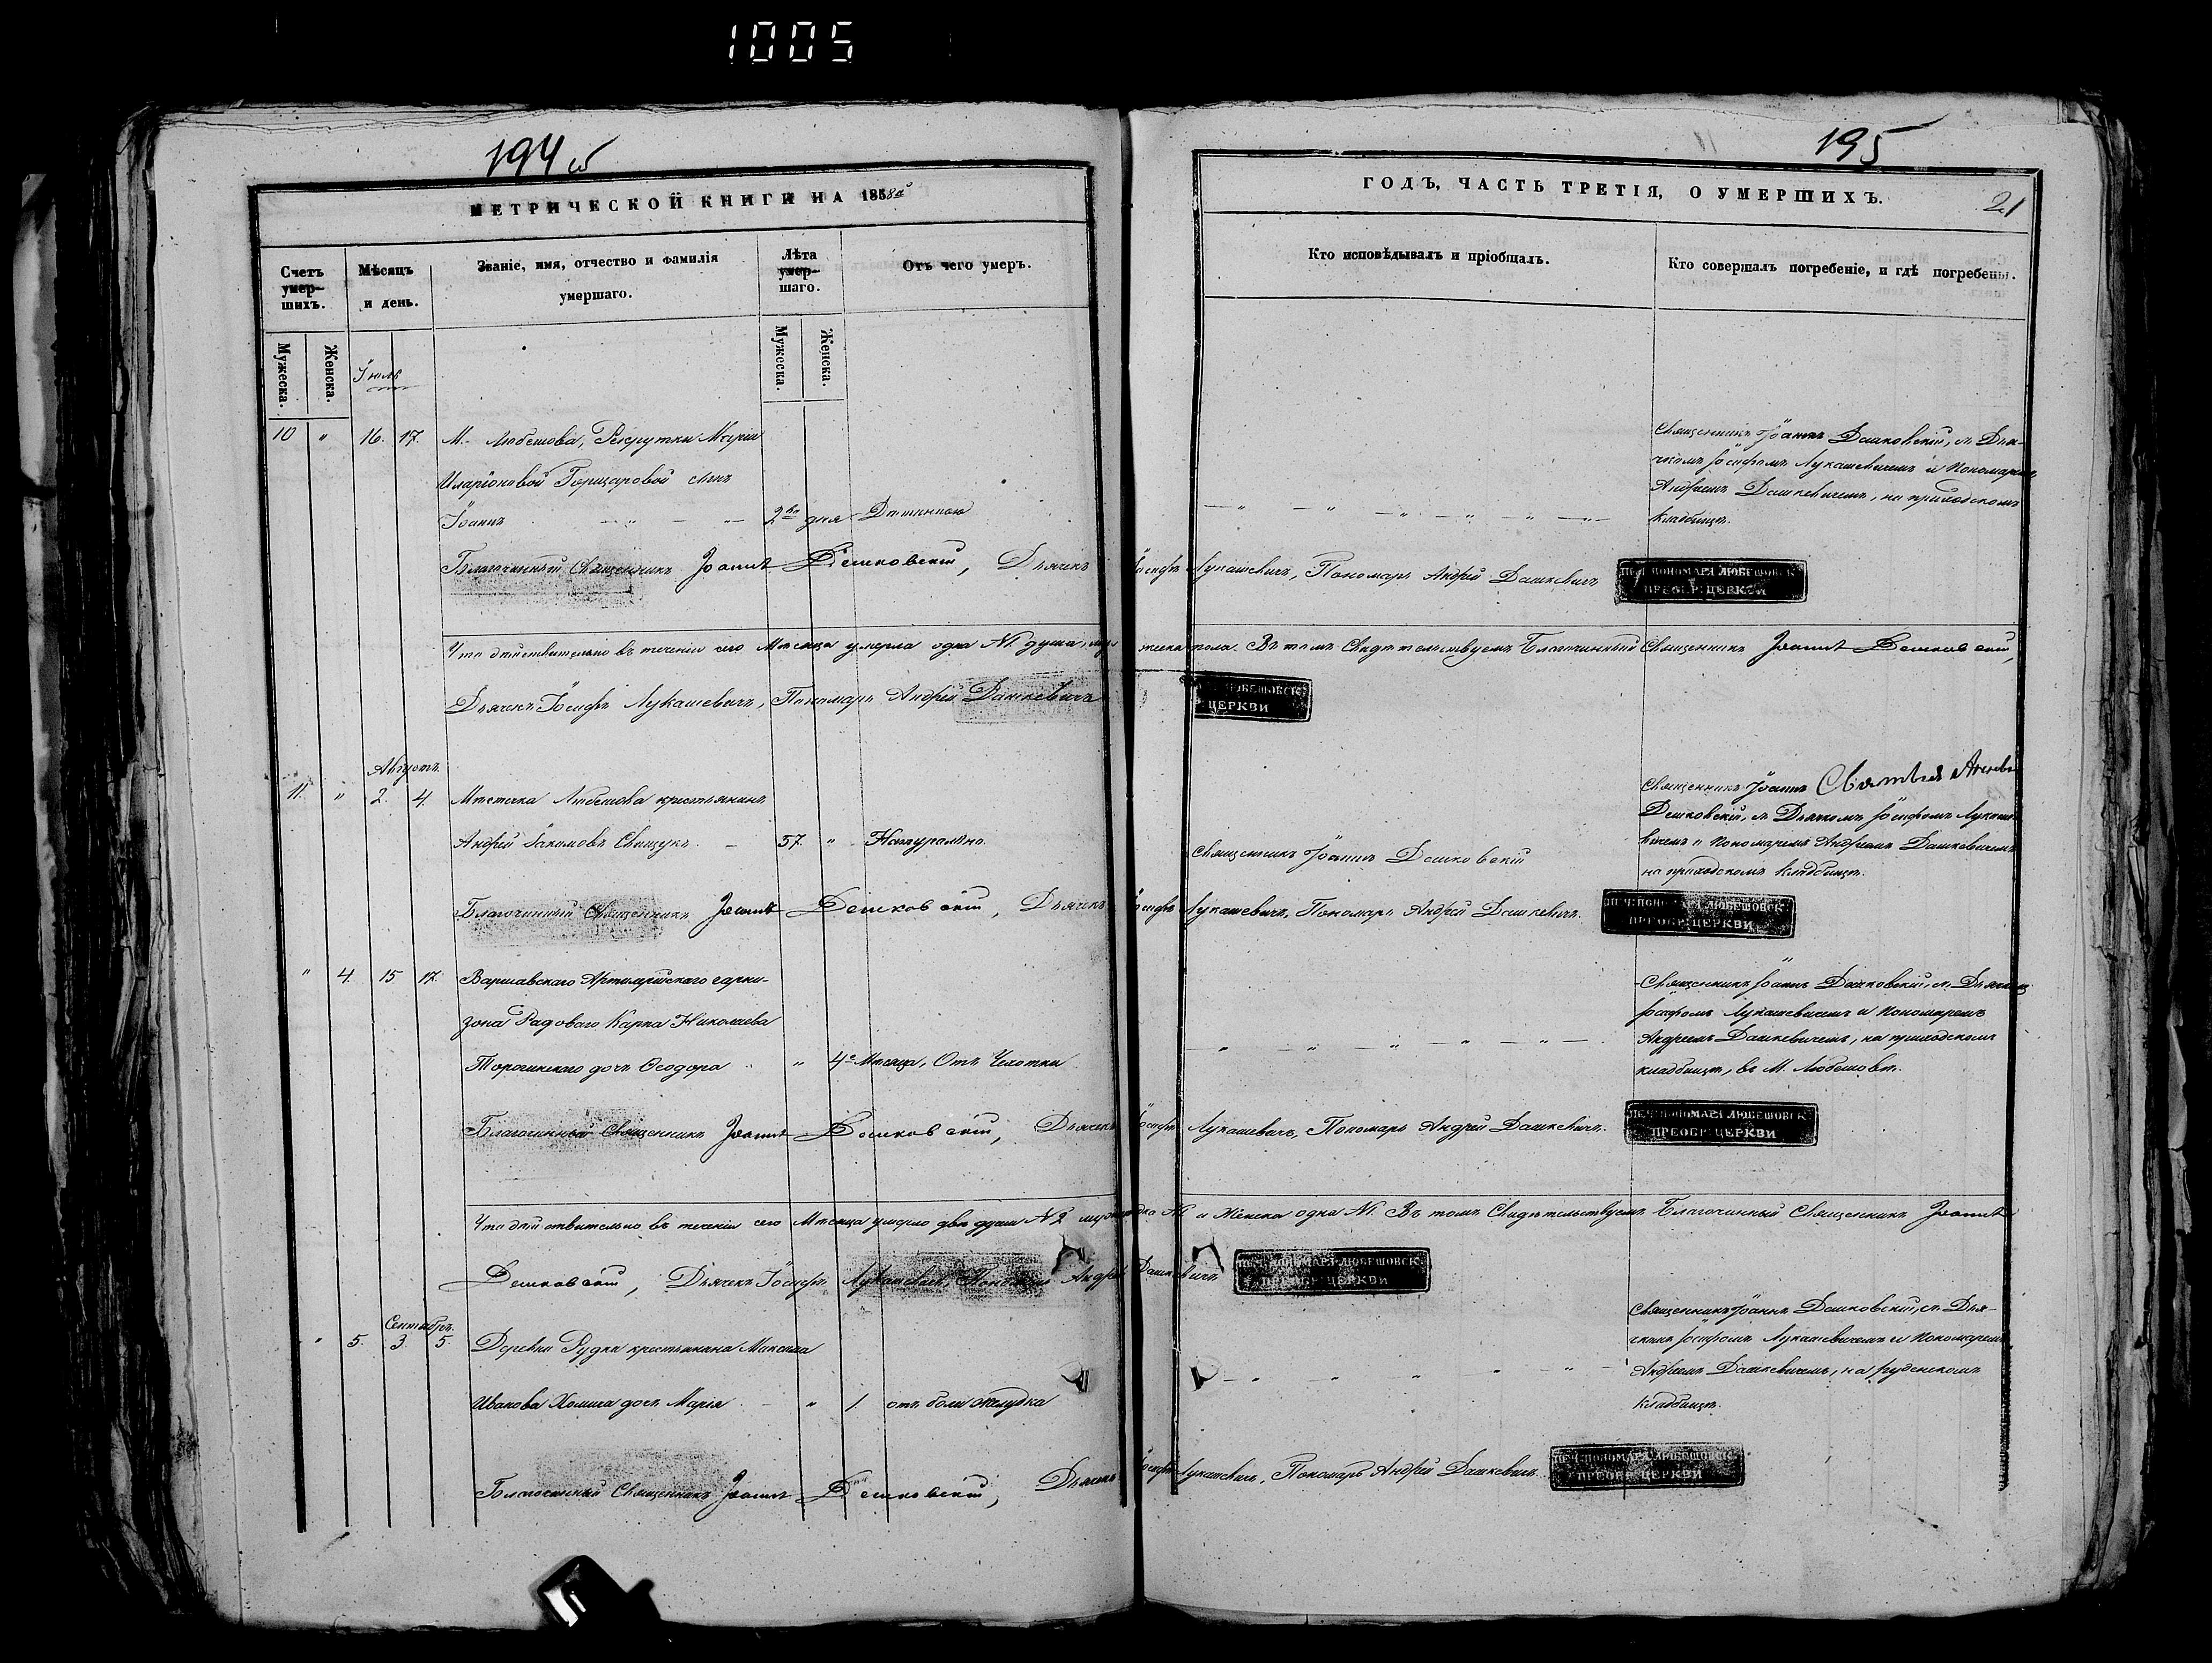 1005
194 об
МЕТРИЧЕСКОЙ КНИГИ НА 1858й
Счетъ умер-шихъ.
Мѣсяцъ и день.
Званіе, имя, отчество и фамилія умершаго.
Лѣта умер-шаго.
Отъ чего умеръ.
Мужеска.
Женска.
Мужеска.
Женска.
Іюль
10 " 16. 17. М. Любешова, Рекрутки Маріи
Иларіоновой сынъ
Іоаннъ 2хъ дня
Благочинный Священникъ Іоаннъ Дешковскій, Дьячекъ
Что дѣйствительно въ теченіи сего Мѣсяца умерла одна №1 душа,
Дьячекъ Іосифъ Лукашевичъ, Пономарь Андрей Дашкевичъ
Августъ.
11. " 2. 4. Мѣстечка Любешова крестьянинъ
Андрей Іакимовъ Свищукъ. 57. " Натурально.
Благочинный Священникъ Іоаннъ Дешковскій, Дьячекъ
" 4. 15 17. Варшавскаго Артилерійскаго гарни-
зона Радоваго Карпа Николаева
дочь Ѳеодора " 4е Мѣсяца, Отъ Чахотки
Благочинный Священникъ Іоаннъ Дешковскій, Дьячекъ
Что дѣйствительно въ теченіи сего Мѣсяца умерло двѣ души №2
Дешковскій, Дьячекъ Іосифъ Лукашевичъ, Пономарь Андрей
Сентябрь.
" 5. 3. 5. Деревни Рудки крестьянина Максима
Иванова Хомича дочь Марія " 1. отъ боли желудка
Благочинный Священникъ Іоаннъ Дешковскій, Дьячекъ
195
ГОДЪ, ЧАСТЬ ТРЕТІЯ, О УМЕРШИХЪ.
21
Кто исповѣдывалъ и пріобщалъ.
Кто совершалъ погребеніе, и гдѣ погребены.
Священникъ Іоаннъ Дешковскій, съ Дья-
чкомъ Іосифомъ Лукашевичемъ и Пономаремъ
Андреемъ Дашкевичемъ, на приходскомъ
кладбищѣ.
Іосифъ Лукашевичъ, Пономарь Андрей Дашкевичъ
ПЕЧ: ПОНОМАРЯ ЛЮБЕШОВСК:
ПРЕОБР: ЦЕРКВИ
пола. Въ томъ Свидѣтельствуемъ Благочинный Священникъ Іоаннъ Дешковскій,
ЛЮБЕШОВСК:
ЦЕРКВИ
Священникъ Іоаннъ
Дешковскій, съ Дьячкомъ Іосифомъ Лукаше-
вичемъ и Пономаремъ Андреемъ Дашкевичемъ
на приходскомъ кладбищѣ.
Священникъ Іоаннъ Дешковскій
Іосифъ Лукашевичъ, Пономарь Андрей Дашкевичъ.
ПЕЧ: ПОНОМАРЯ ЛЮБЕШОВСК:
ПРЕОБР: ЦЕРКВИ
Священникъ Іоаннъ Дешковскій, съ Дьячкомъ
Іосифомъ Лукашевичемъ и Пономаремъ
Андреемъ Дашкевичемъ, на приходскомъ
кладбищѣ, въ М. Любешовѣ.
Іосифъ Лукашевичъ, Пономарь Андрей Дашкевичъ.
ПЕЧ: ПОНОМАРЯ ЛЮБЕШОВСК:
ПРЕОБР: ЦЕРКВИ
№1 и Женска одна №1. Въ томъ Свидѣтельствуемъ Благочинный Священникъ Іоаннъ
Дашкевичъ
ПЕЧ: ПОНОМАРЯ ЛЮБЕШОВСК:
ПРЕОБР: ЦЕРКВИ
Священникъ Іоаннъ Дешковскій, съ Дья-
чкомъ Іосифомъ Лукашевичемъ и Пономаремъ
Андреемъ Дашкевичемъ, на руденскомъ
кладбищѣ.
Іосифъ Лукашевичъ, Пономарь Андрей Дашкевичъ.
ПЕЧ: ПОНОМАРЯ ЛЮБЕШОВСК:
ПРЕОБР: ЦЕРКВИ